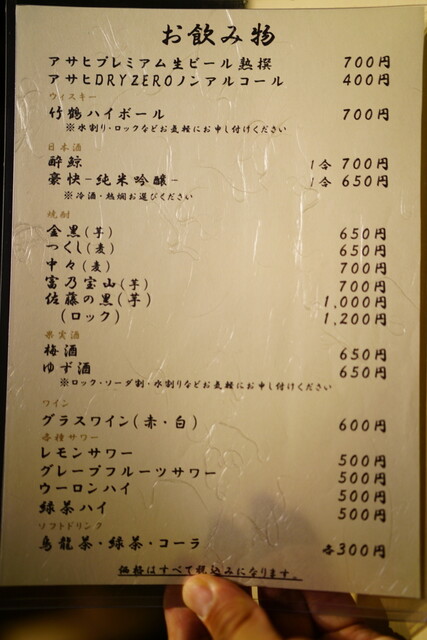 お飲み物
アサヒプレミアム生ビール熟撰 700円
アサヒDRYZEROノンアルコール 400円
ウィスキー
竹鶴ハイボール 700円
※水割り・ロックなどお気軽にお申し付けください
日本酒
酔鯨 1合 700円
豪快-純米吟醸- 1合 650円
※冷酒・熱燗お選びください
焼酎
金黒(芋) 650円
つくし(麦) 650円
中々(麦) 700円
富乃宝山(芋) 700円
佐藤の黒(芋) 1,000円
(ロック) 1,200円
果実酒
梅酒 650円
ゆず酒 650円
※ロック・ソーダ割・水割りなどお気軽にお申し付けください
ワイン
グラスワイン(赤・白) 600円
各種サワー
レモンサワー 500円
グレープフルーツサワー 500円
ウーロンハイ 500円
緑茶ハイ 500円
ソフトドリンク
烏龍茶・緑茶・コーラ 各300円
価格はすべて税込みになります。